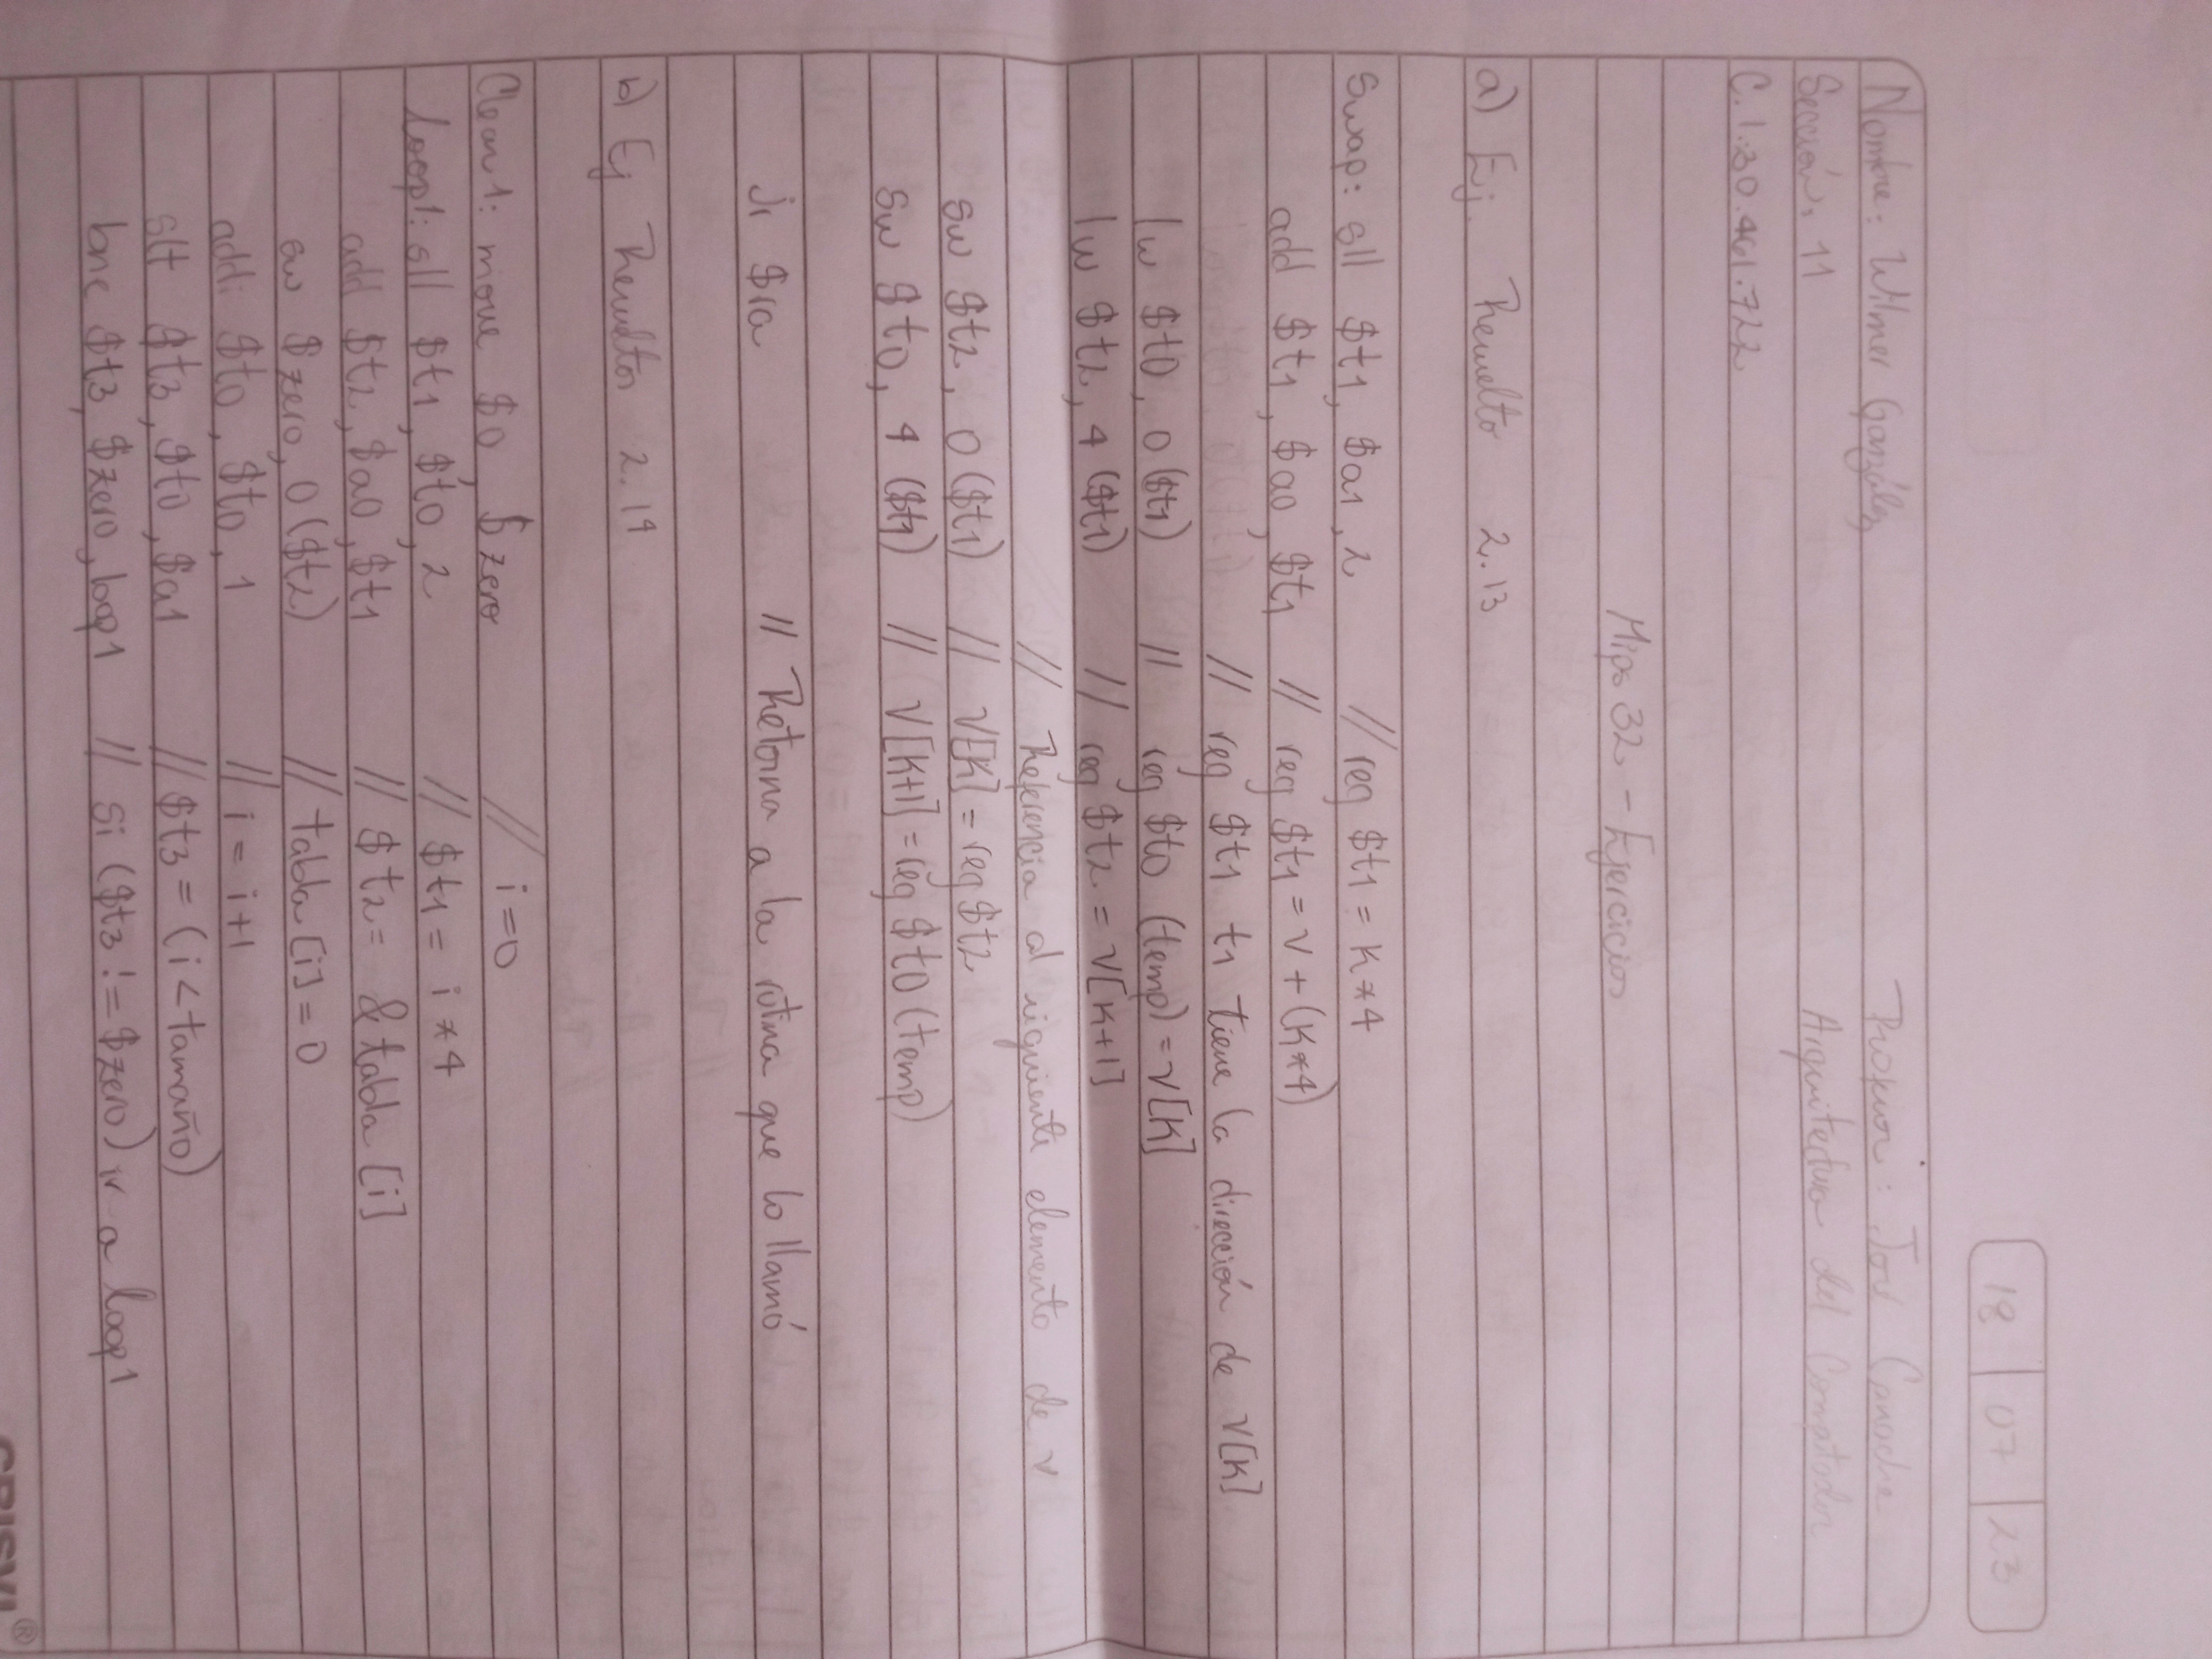 18 07 23
Nombre: Wilmer González
Profesor: José Canache
Sección: 11
Arquitectura del Computador
C.I.:30.461.722
Mips 32 - Ejercicios
a) Ej. Resuelto 2.13
Swap: sll $t1, $a1, 2 // reg $t1 = K*4
add $t1, $a0, $t1 // reg $t1 = V + (K*4)
// reg $t1 t1 tiene la dirección de V[K]
lw $t0, 0 ($t1) // reg $t0 (temp) = V[K]
lw $t2, 4 ($t1) // reg $t2 = V[K+1]
// Referencia al siguiente elemento de v
sw $t2, 0 ($t1) // V[K] = reg $t2
sw $t0, 4 ($t1) // V[K+1] = reg $t0 (temp)
jr $ra // Retorna a la rutina que lo llamó
b) Ej Resueltos 2.14
Clear 1: move $0, $zero // i=0
loop1: sll $t1, $t0, 2 // $t1 = i *4
add $t2, $a0, $t1 // $t2 = &tabla [i]
sw $zero, 0 ($t2) // tabla [i] = 0
addi $t0, $t0, 1 // i = i+1
slt $t3, $t0, $a1 // $t3 = (i < tamaño)
bne $t3, $zero, loop1 // Si ($t3 != $zero) ir a loop1